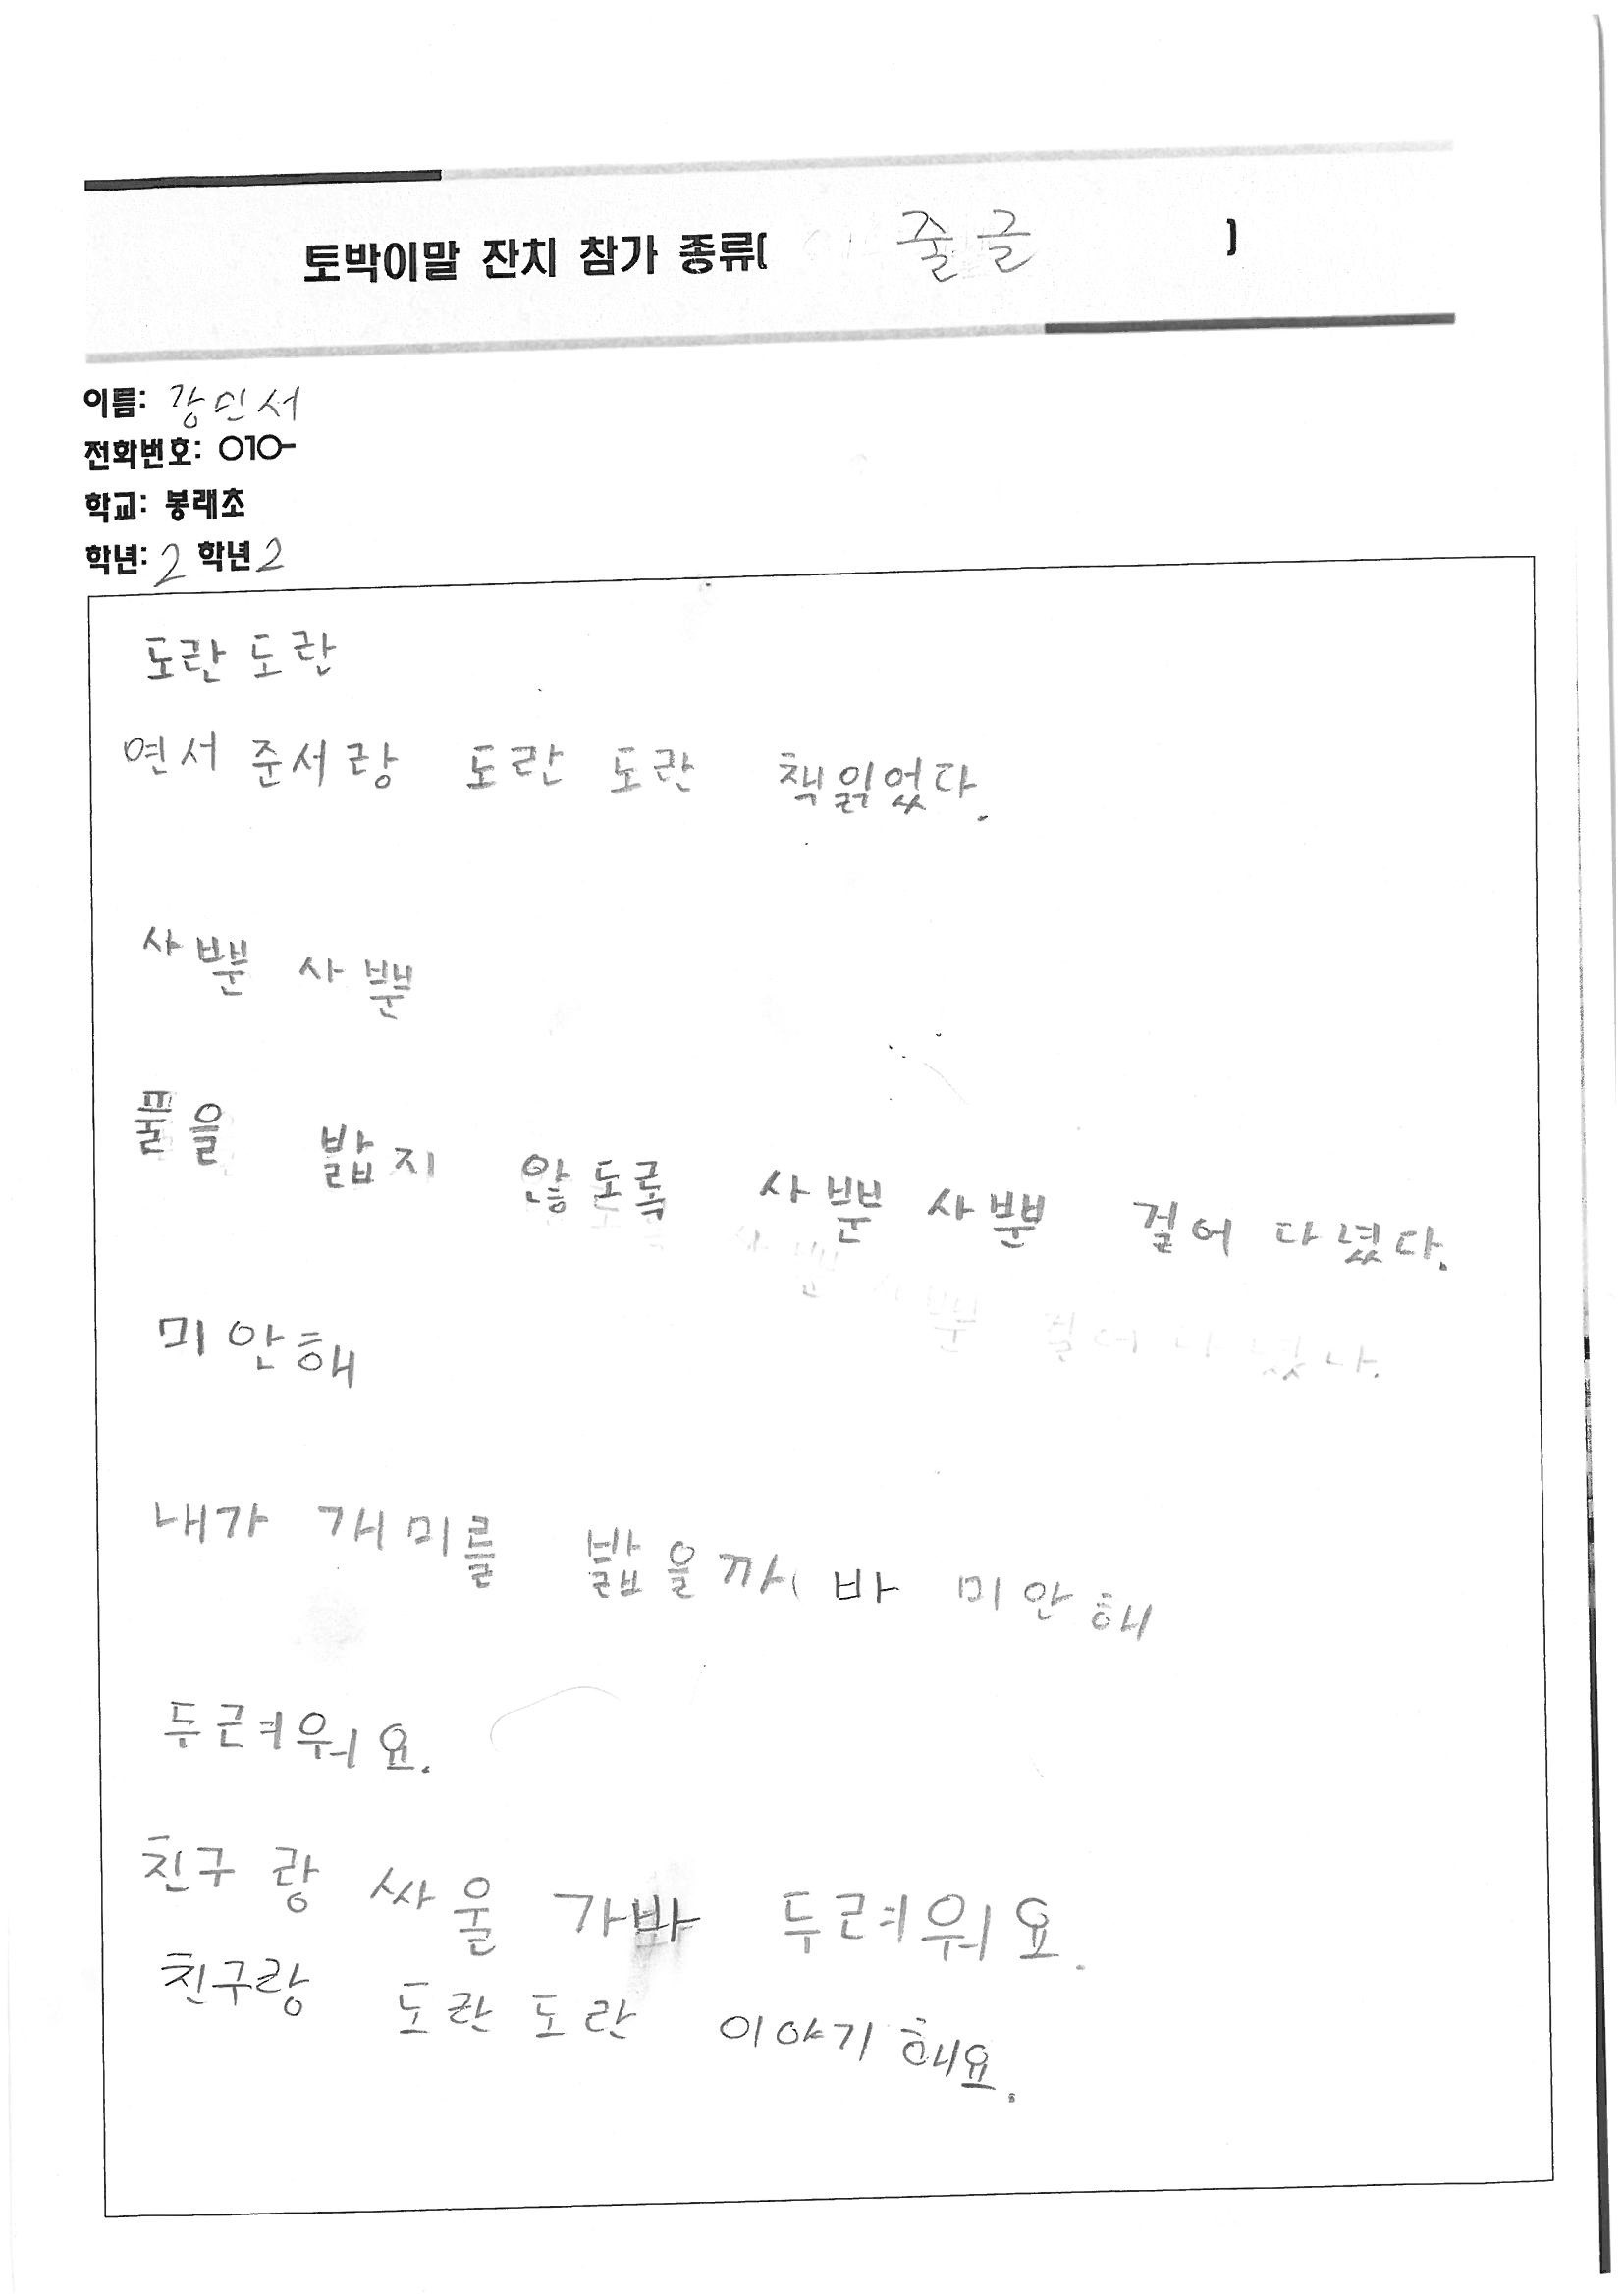 토박이말 잔치 참가 종류( 줄글 )
이름: 강인서
전화번호: 010-
학교: 봉래초
학년: 2 학년 2
도란 도란
연서 준서랑 도란 도란 책읽었다.
사뿐 사뿐
풀을 밟지 않도록 사뿐 사뿐 걸어 다녔다.
미안해
내가 개미를 밟을까 바 미안해
두려워요.
친구랑 싸울 가바 두려워요.
친구랑 도란 도란 이야기해요.